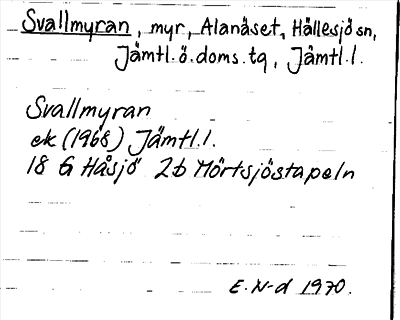 Svallmyran, myr, Alanäset, Hällesjö sn,
Jämtl.ö.doms.tg, Jämtl.l.
Svallmyran
ek (1968) Jämtl.l.
18 G Håsjö 2b Mörtsjöstapeln
E. N-d 1970.